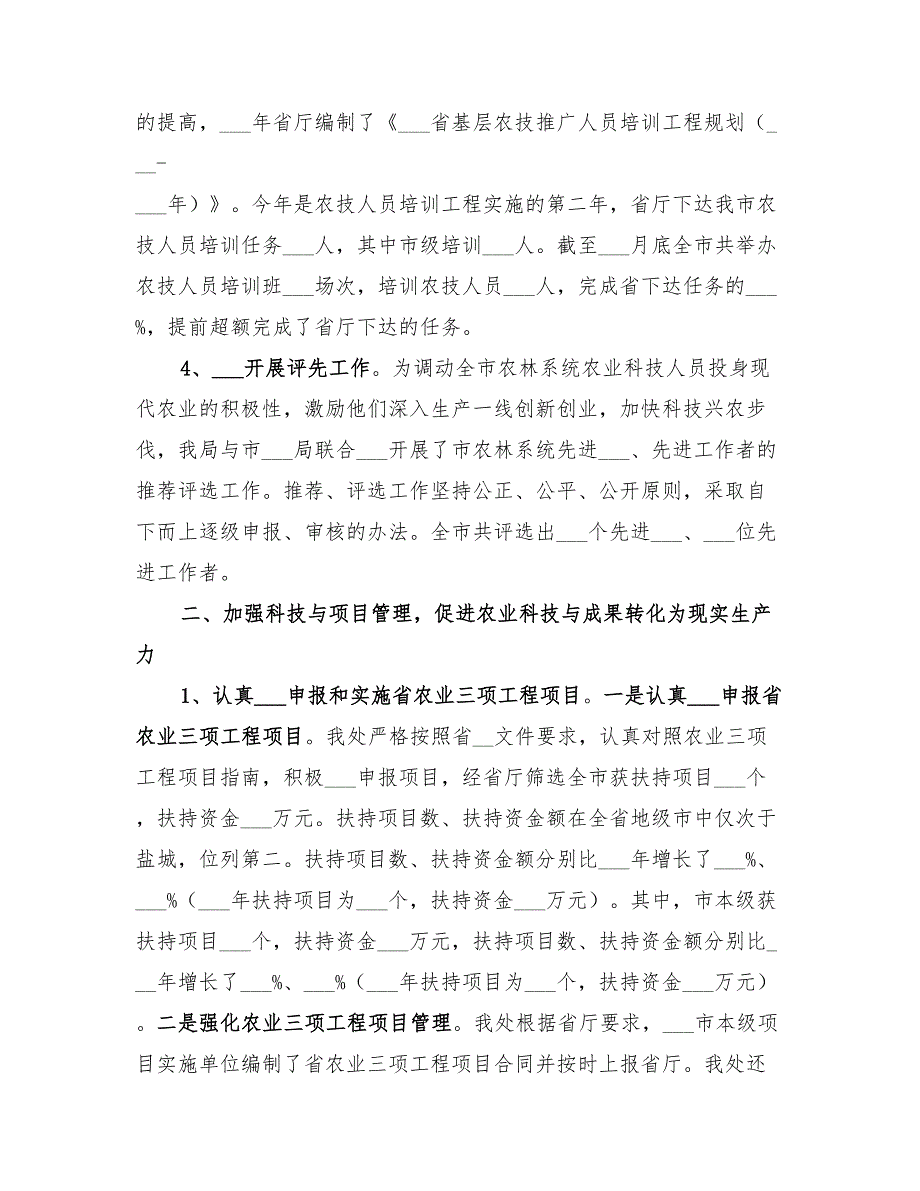 的提高，___年省厅编制了《___省基层农技推广人员培训工程规划（_
__-
___年）》。今年是农技人员培训工程实施的第二年，省厅下达我市农
技人员培训任务___人，其中市级培训___人。截至___月底全市共举办
农技人员培训班___场次，培训农技人员___人，完成省下达任务的___
%，提前超额完成了省厅下达的任务。
4、___开展评先工作。为调动全市农林系统农业科技人员投身现
代农业的积极性，激励他们深入生产一线创新创业，加快科技兴农步
伐，我局与市___局联合___开展了市农林系统先进___、先进工作者的
推荐评选工作。推荐、评选工作坚持公正、公平、公开原则，采取自
下而上逐级申报、审核的办法。全市共评选出___个先进___、___位先
进工作者。
二、加强科技与项目管理，促进农业科技与成果转化为现实生产
力
1、认真___申报和实施省农业三项工程项目。一是认真___申报省
农业三项工程项目。我处严格按照省__文件要求，认真对照农业三项
工程项目指南，积极___申报项目，经省厅筛选全市获扶持项目___个
，扶持资金___万元。扶持项目数、扶持资金额在全省地级市中仅次于
盐城，位列第二。扶持项目数、扶持资金额分别比___年增长了___%、
___%（___年扶持项目为___个，扶持资金___万元）。其中，市本级获
扶持项目___个，扶持资金___万元，扶持项目数、扶持资金额分别比_
__年增长了___%、___%（___年扶持项目为___个，扶持资金___万元）
。二是强化农业三项工程项目管理。我处根据省厅要求，___市本级项
目实施单位编制了省农业三项工程项目合同并按时上报省厅。我处还